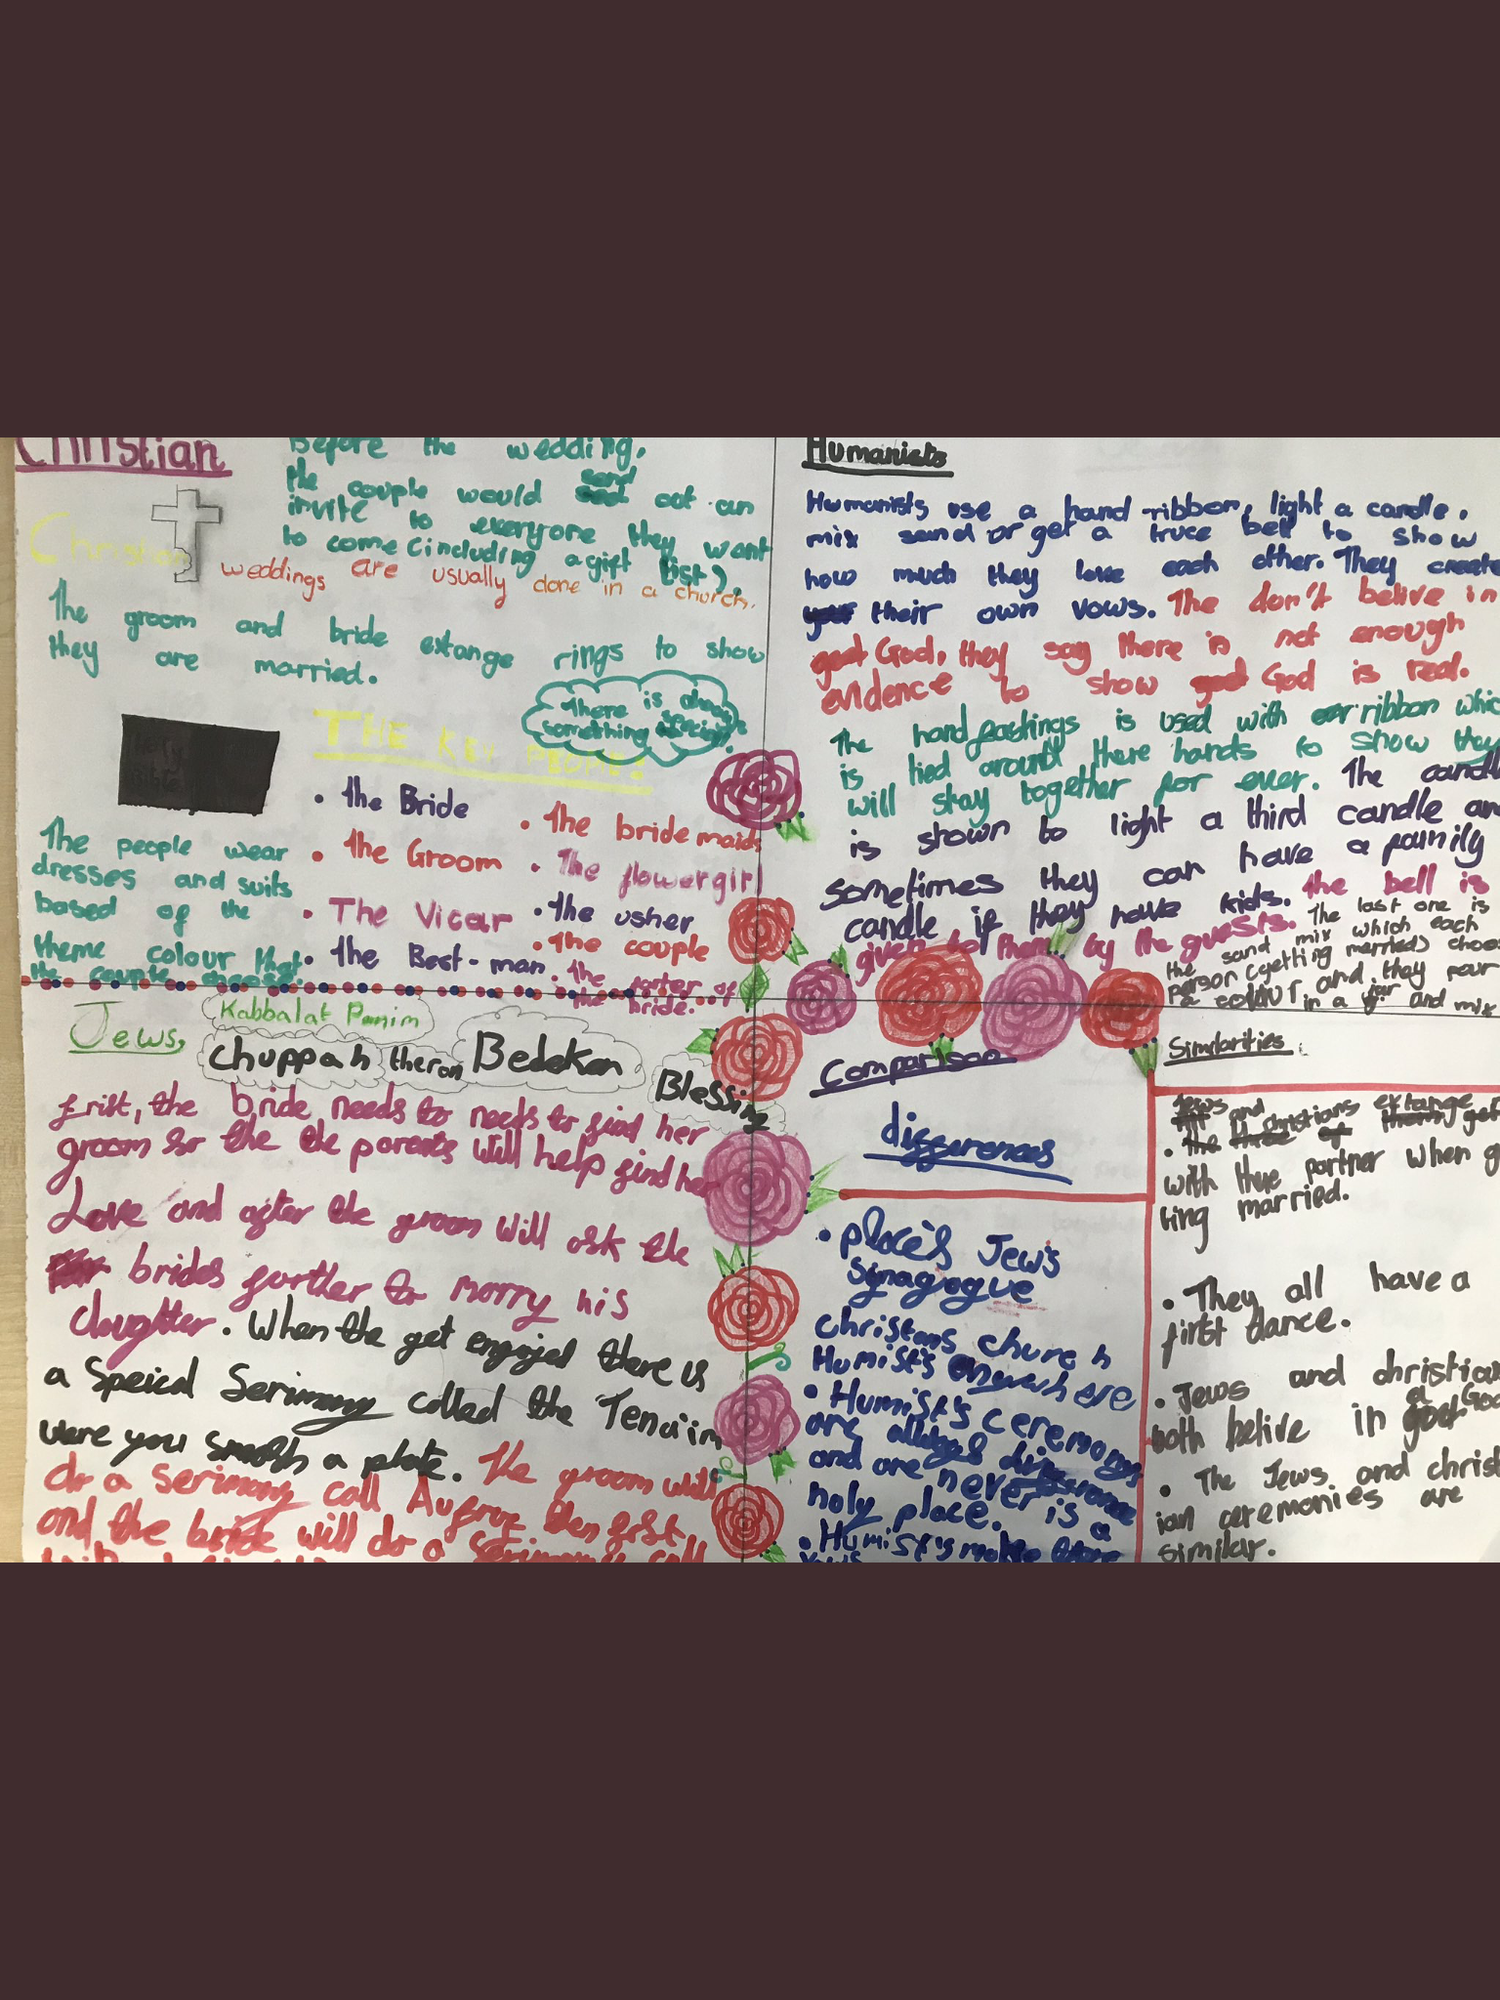 Christian
Before the wedding,
the couple would send out an
invite to everyone they want
to come (including a gift list).
Christian
weddings are usually done in a church.
The groom and bride extange rings to show
they are married.
there is always
something special
THE KEY PEOPLE:
Holy
Bible
• the Bride
• the Groom
• The Vicar
• the Best-man
• the bridemaids
• The flowergirl
• the usher
• the couple
• the
bride.
The people wear
dresses and suits
based of the
theme colour that
the couple choose.
Humanists
Humanists use a hand ribbon, light a candle,
mix sand or get a truce bell to show
how much they love each other. They create
their own vows. The don't belive in
God, they say there is not enough
evidence to show God is real.
The handfastings is used with ribbon
is tied around there hands to show they
will stay together for ever. The candle
is shown to light a third candle
sometimes they can have a family
candle if they have kids. the bell is
given to them by the guests. The last one is
the sand mix which each
person (getting married)
a colour and they pour
in a jar and mix
Jews,
Kabbalat Panim
Chuppah
Bedeken
Blessing
frist, the bride needs to needs to find her
groom so the the parents will help find her
Love and after the groom will ask the
brides further to marry his
daughter. When the get engajed there is
a Speical Serimony called the Tena'im
were you smash a plate. The groom will
do a serimony call then frist
and the bride will do a serimony call
Comparison
differences
• place's Jew's
Synagogue
christans church
Humist's anywhere
• Humist's ceremonys
are
and are never is a
holy place.
• Humist's make there
vows
Similarities
Jews and christians extange
• the
with there partner when
ting married.
• They all have a
first dance.
• Jews and
both belive in God
• The Jews and christ
ian ceremonies are
similar.